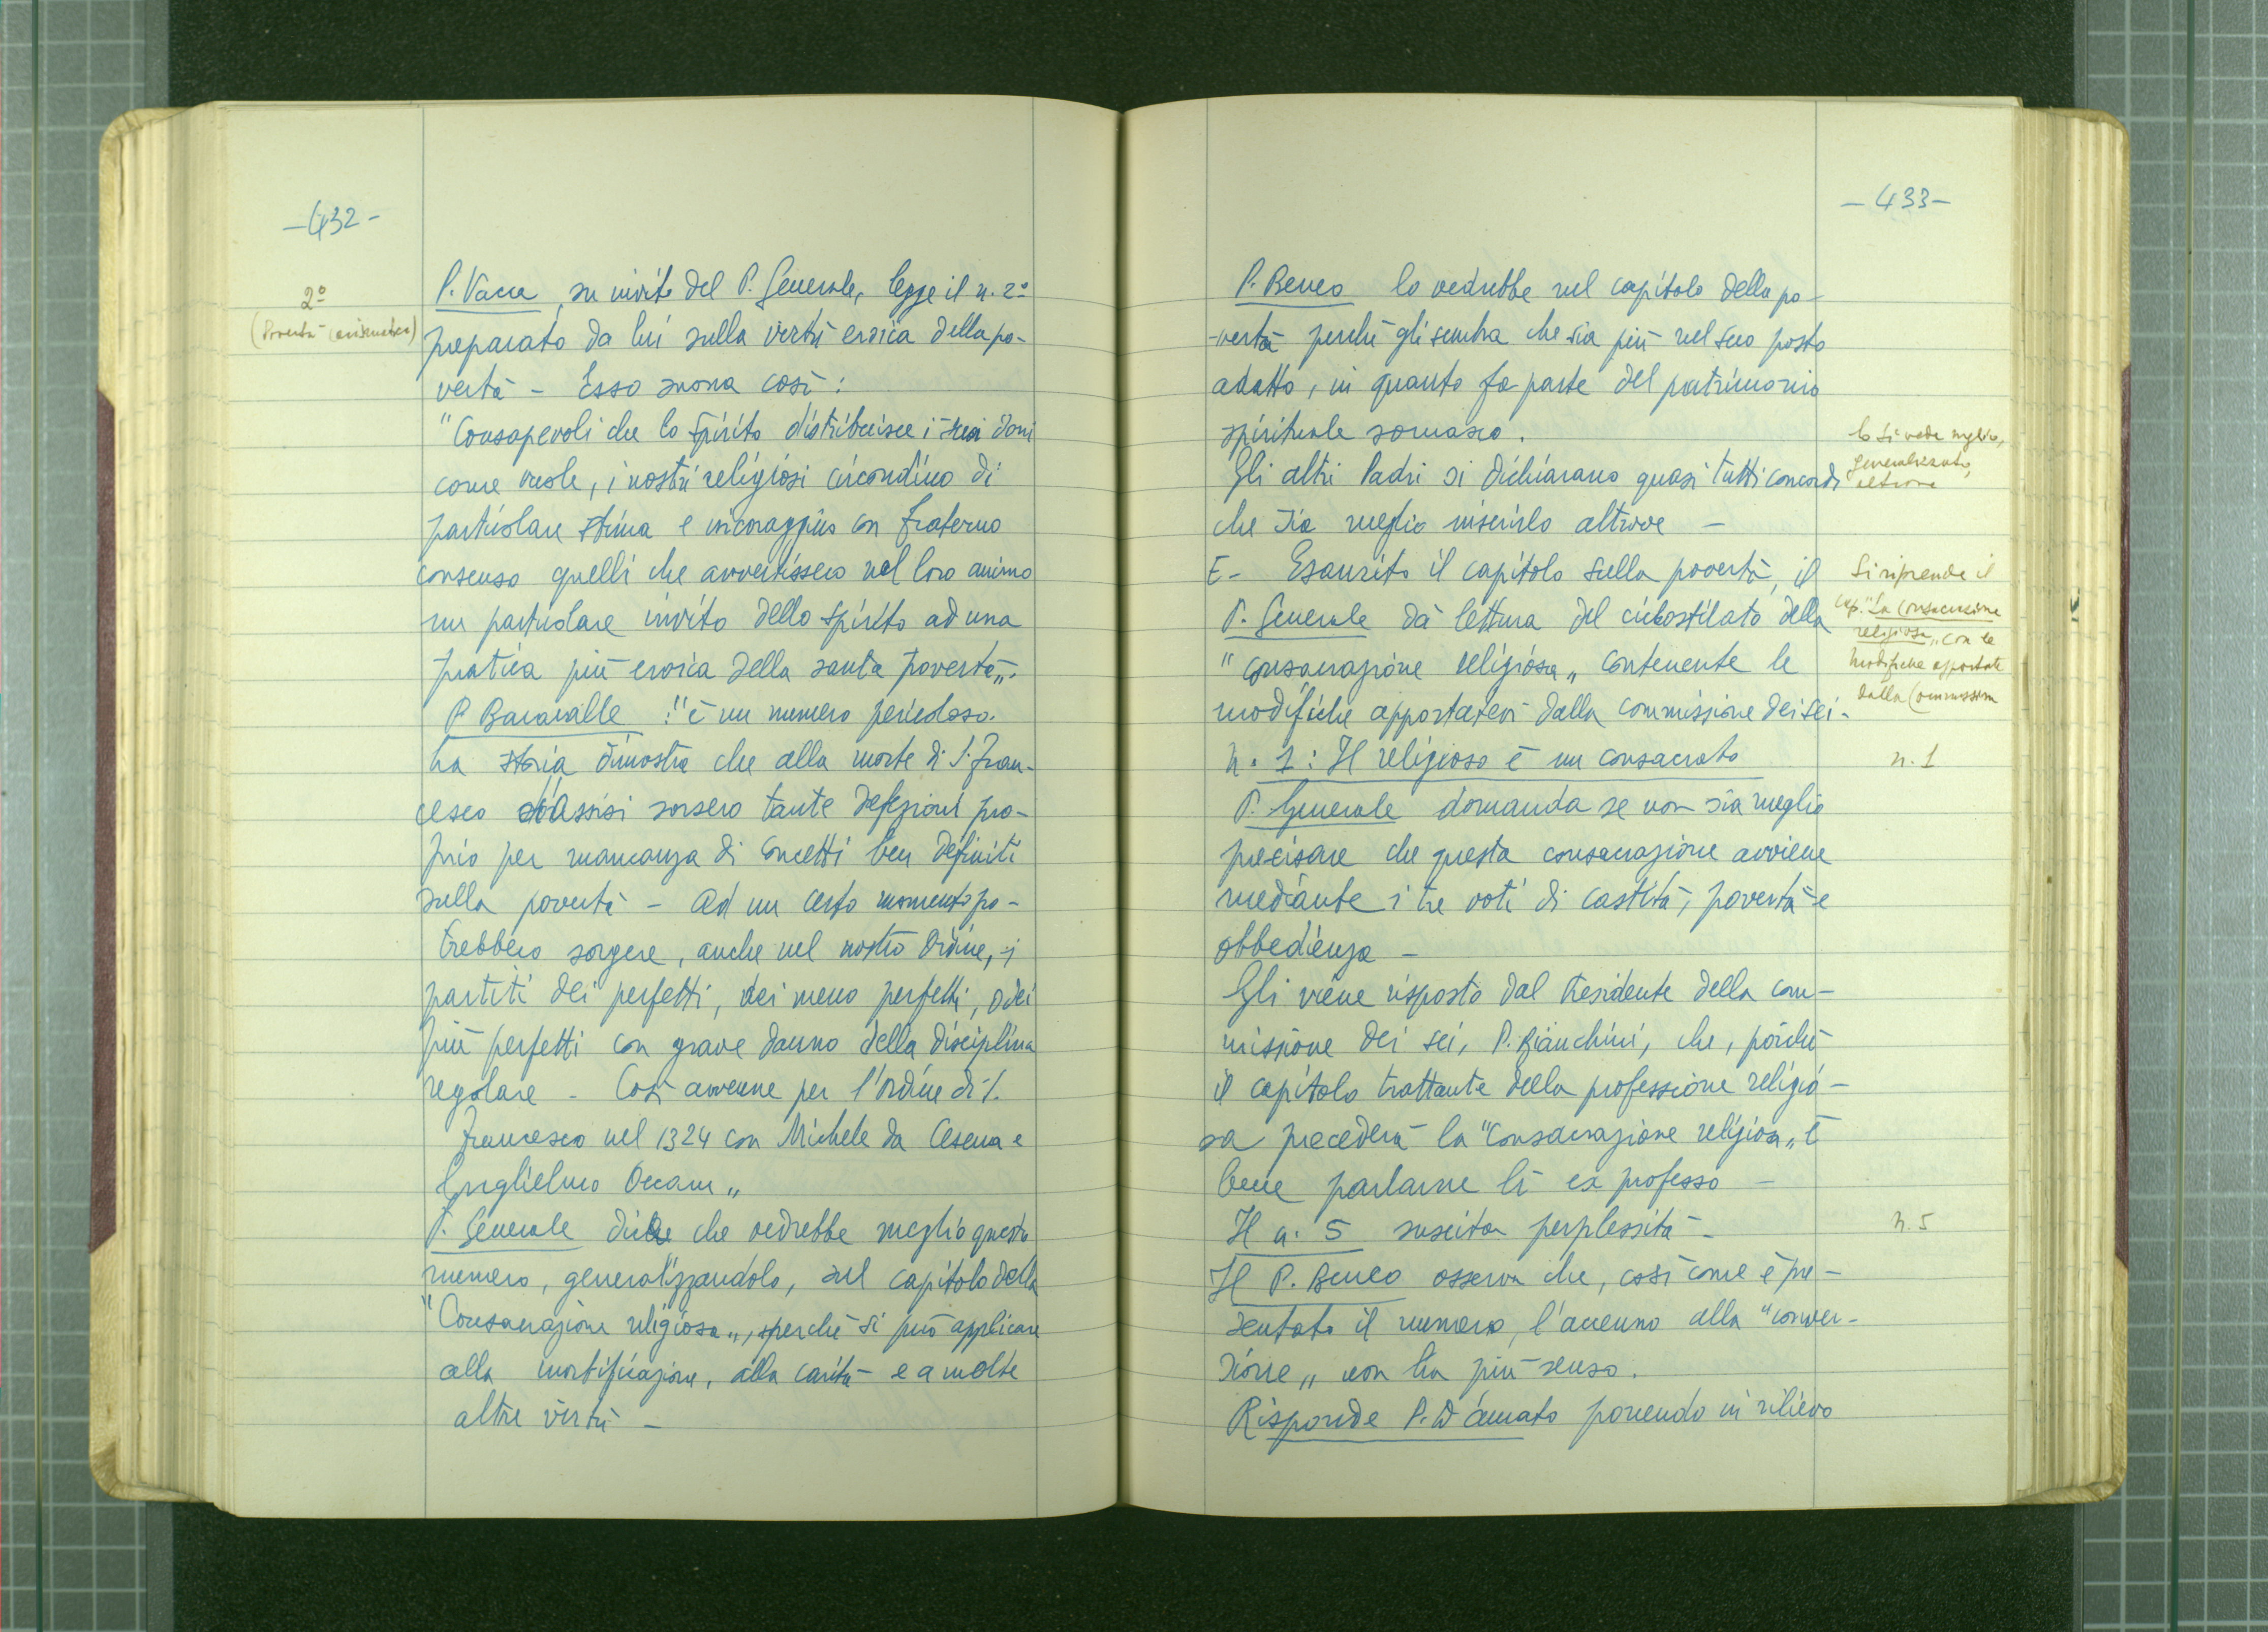 -432-
2º
(Povertà carismatica)
P. Vacca, su invito del P. Generale, legge il n. 2º
preparato da lui sulla virtù eroica della po-
vertà - Esso suona così:
"Consapevoli che lo Spirito distribuisce i suoi doni
come vuole, i nostri religiosi circondino di
particolare stima e incoraggino con fraterno
consenso quelli che avvertissero nel loro animo
un particolare invito dello Spirito ad una
pratica più eroica della santa povertà„.
P. Bacavalle : "è un numero pericoloso.
La storia dimostra che alla morte di S. Fran-
cesco d'Assisi sorsero tante defezioni pro-
prio per mancanza di concetti ben definiti
sulla povertà - Ad un certo momento po-
trebbero sorgere, anche nel nostro Ordine, i
partiti dei perfetti, dei meno perfetti, dei
più perfetti con grave danno della disciplina
regolare - Così avvenne per l'Ordine di S.
Francesco nel 1324 con Michele da Cesena e
Guglielmo Occam„
P. Generale dice che vedrebbe meglio questo
numero, generalizzandolo, sul capitolo della
"Consacrazione religiosa„, perchè si può applicare
alla mortificazione, alla carità e a molte
altre virtù -
-433-
P. Beneo lo vedrebbe nel capitolo della po-
-vertà perchè gli sembra che sia più nel suo posto
adatto, in quanto fa parte del patrimonio
spirituale somasco.
Gli altri Padri si dichiarano quasi tutti concordi
che sia meglio inserirlo altrove -
lo si vede meglio,
generalizzato,
altrove
E- Esaurito il capitolo sulla povertà, il
P. Generale dà lettura del ciclostilato della
"consacrazione religiosa„ contenente le
modifiche apportatevi dalla commissione dei sei -
Si riprende il
cap. "La consacrazione
religiosa„ con le
modifiche apportate
dalla Commissione
n. 1 : Il religioso è un consacrato
n. 1
P. Generale domanda se non sia meglio
precisare che questa consacrazione avviene
mediante i tre voti di castità, povertà e
obbedienza -
Gli viene risposto dal Presidente della com-
missione dei sei, P. Bianchini, che, poichè
il capitolo trattante della professione religio-
sa precederà la "Consacrazione religiosa„ è
bene parlarne lì ex professo -
Il n. 5 suscita perplessità -
n. 5
Il P. Beneo osserva che, così come è pre-
sentato il numero, l'accenno alla "conver-
sione„ non ha più senso.
Risponde P. D'Amato ponendo in rilievo